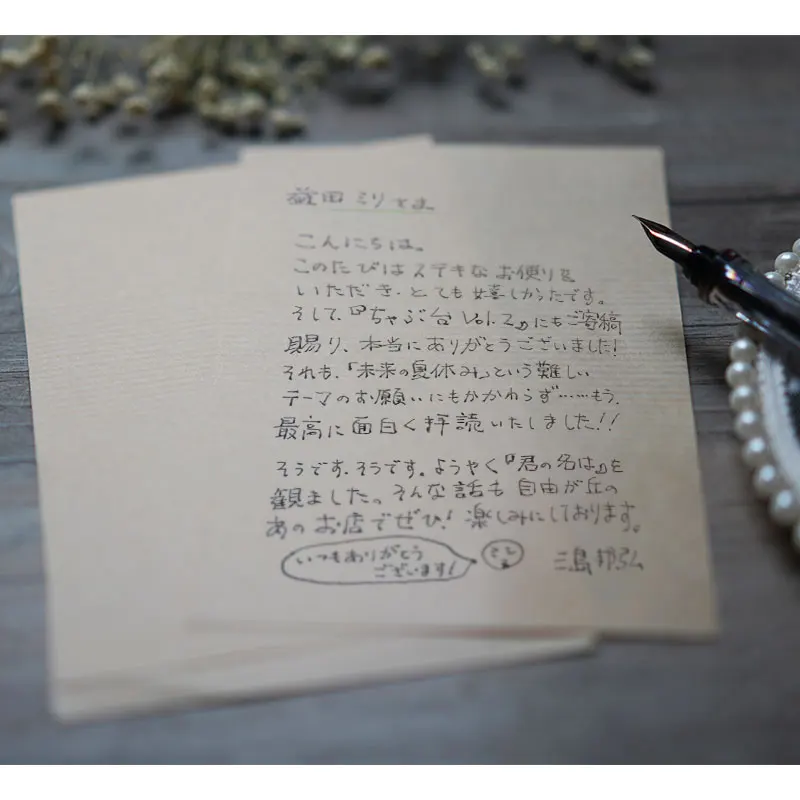 益田ミリさま
こんにちは。
このたびはステキなお便りを
いただき、とても嬉しかったです。
そして、『ちゃぶ台 Vol.2』にもご寄稿
賜り、本当にありがとうございました!
それも、「未来の夏休み」という難しい
テーマのお願いにもかかわらず……もう、
最高に面白く拝読いたしました!!
そうです、そうです。ようやく『君の名は』を
観ました。そんな話も自由が丘の
あのお店でぜひ! 楽しみにしております。
いつもありがとう
ございます!
三島邦弘